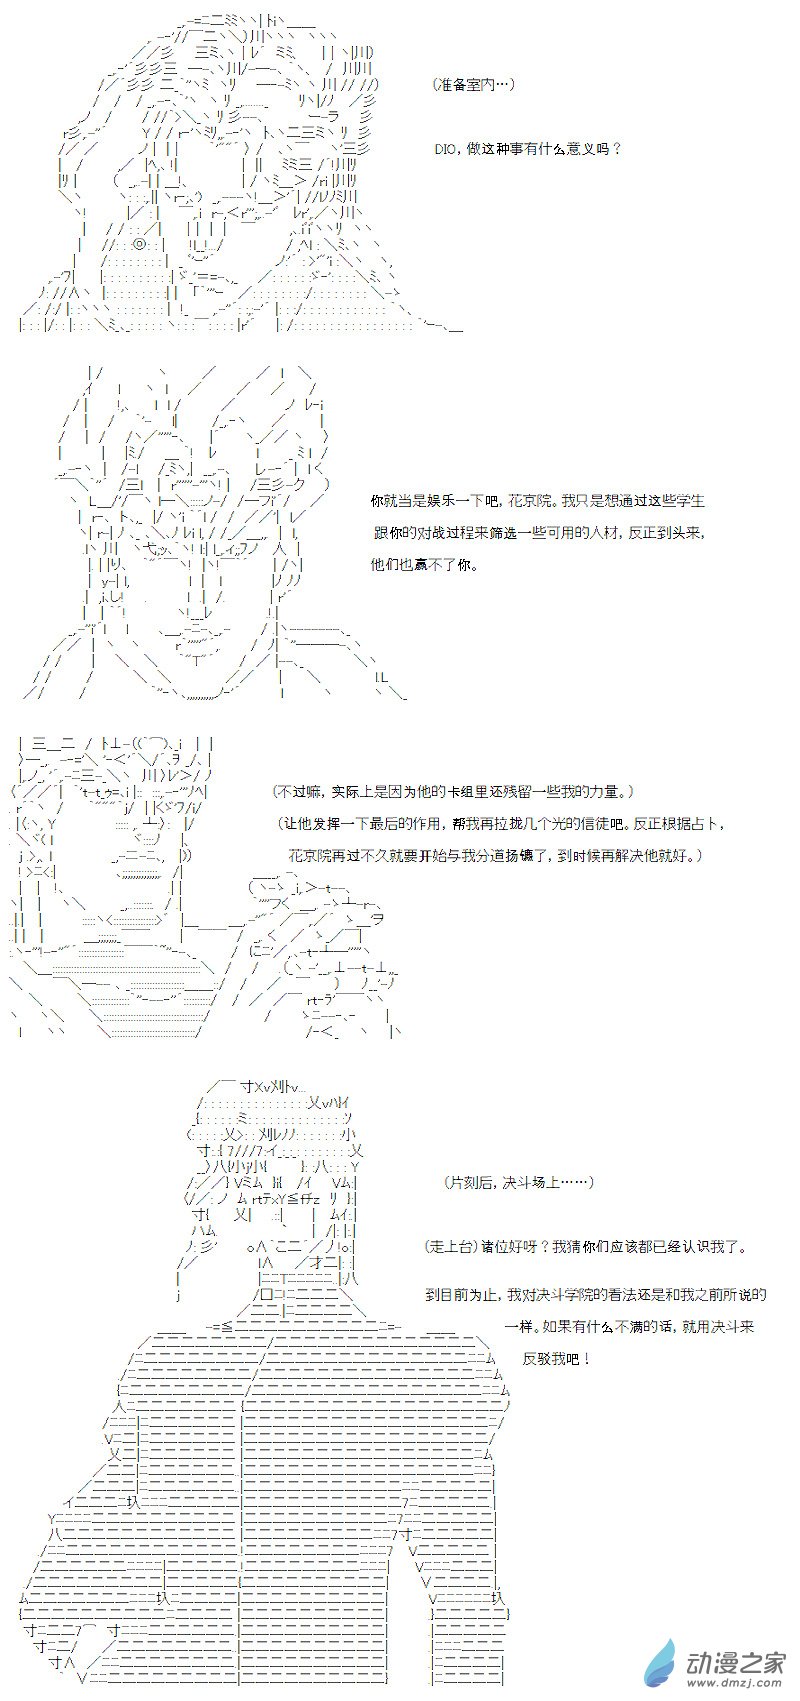 (准备室内…)
DIO，做这种事有什么意义吗？
你就当是娱乐一下吧，花京院。我只是想通过这些学生
跟你的对战过程来筛选一些可用的人材，反正到头来，
他们也赢不了你。
(不过嘛，实际上是因为他的卡组里还残留一些我的力量。)
(让他发挥一下最后的作用，帮我再拉拢几个光的信徒吧。反正根据占卜，
花京院再过不久就要开始与我分道扬镳了，到时候再解决他就好。)
(片刻后，决斗场上……)
(走上台)诸位好呀？我猜你们应该都已经认识我了。
到目前为止，我对决斗学院的看法还是和我之前所说的
一样。如果有什么不满的话，就用决斗来
反驳我吧！
动漫之家
www.dmzj.com